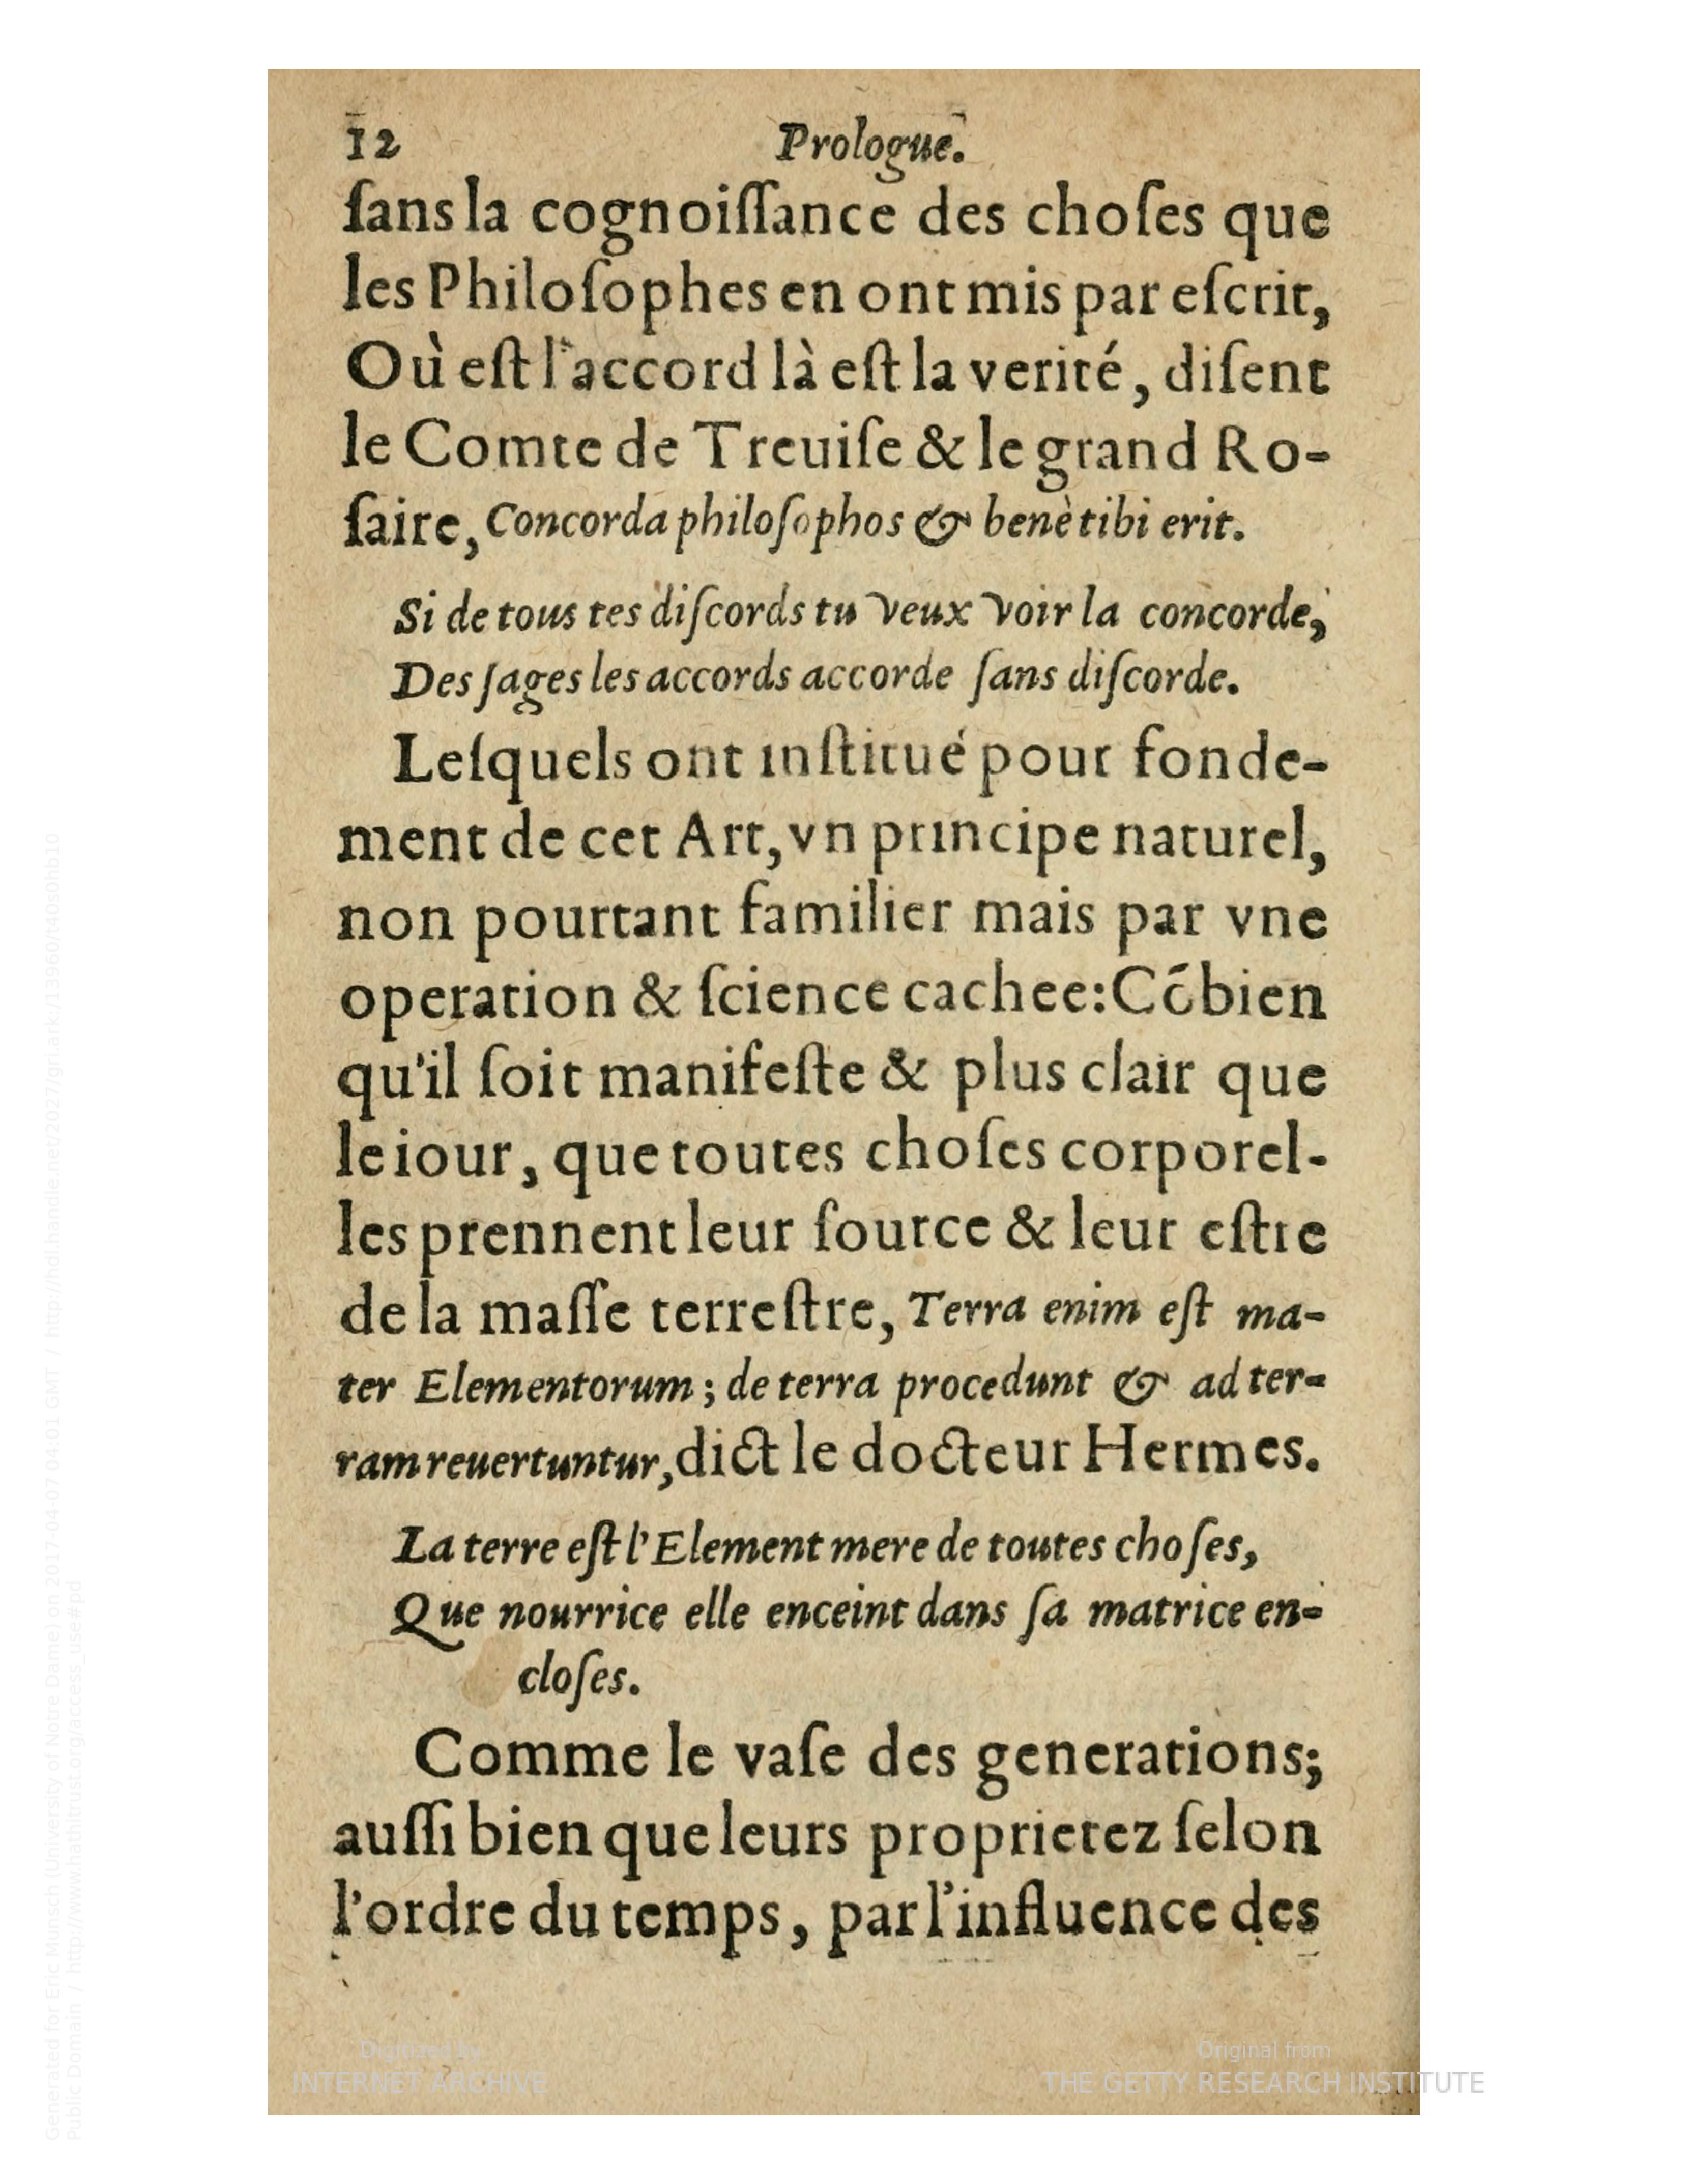 12 Prologue.
ſans la cognoiſſance des choſes que
les Philoſophes en ont mis par eſcrit,
Où eſt l'accord là eſt la verité, diſent
le Comte de Treuiſe & le grand Ro-
ſaire, Concorda philoſophos & benè tibi erit.
Si de tous tes diſcords tu veux voir la concorde,
Des ſages les accords accorde ſans diſcorde.
Leſquels ont inſtitué pour fonde-
ment de cet Art, vn principe naturel,
non pourtant familier mais par vne
operation & ſcience cachee: Cõbien
qu'il ſoit manifeſte & plus clair que
le iour, que toutes choſes corporel-
les prennent leur ſource & leur eſtre
de la maſſe terreſtre, Terra enim eſt ma-
ter Elementorum; de terra procedunt & ad ter-
ram reuertuntur, dict le docteur Hermes.
La terre eſt l'Element mere de toutes choſes,
Que nourrice elle enceint dans ſa matrice en-
cloſes.
Comme le vaſe des generations;
auſſi bien que leurs proprietez ſelon
l'ordre du temps, par l'influence des
Digitized by
INTERNET ARCHIVE
Original from
THE GETTY RESEARCH INSTITUTE
Generated for Eric Munsch (University of Notre Dame) on 2017-04-07 04:01 GMT / http://hdl.handle.net/2027/gri.ark:/13960/t40s0hb10
Public Domain / http://www.hathitrust.org/access_use#pd